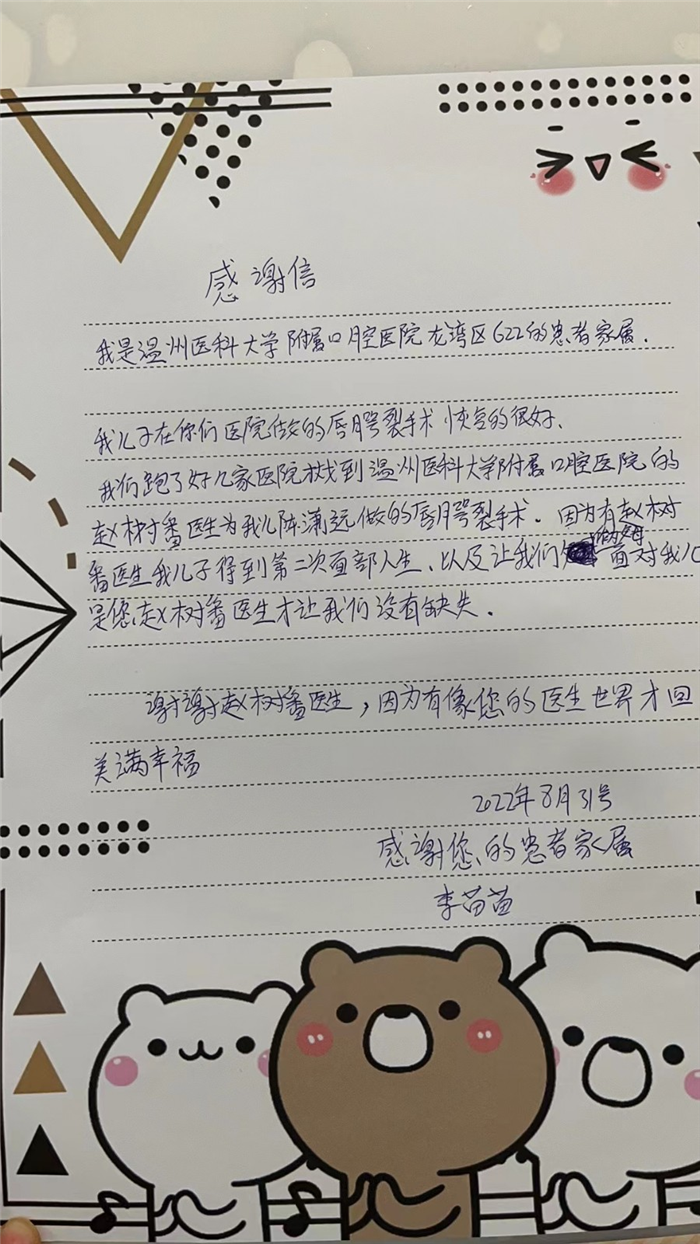 感谢信
我是温州医科大学附属口腔医院龙湾区622的患者家属.
我儿子在你们医院做的唇腭裂手术恢复的很好.
我们跑了好几家医院才找到温州医科大学附属口腔医院的
赵树蕃医生为我儿陈潇远做的唇腭裂手术. 因为有赵树
蕃医生我儿子得到第二次面部人生. 以及让我们做父母面对我儿
是您,赵树蕃医生才让我们没有缺失.
谢谢赵树蕃医生,因为有像您的医生世界才回
美满幸福
2022年8月31号
感谢您的患者家属
李苗苗